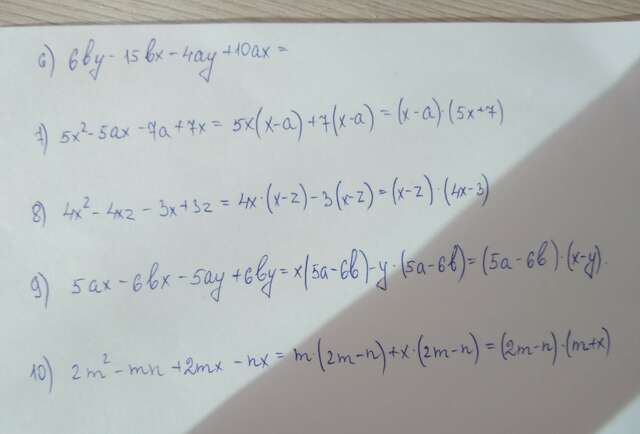 6) 6by - 15bx - 4ay + 10ax =
7) 5x² - 5ax - 7a + 7x = 5x(x-a) + 7(x-a) = (x-a)·(5x+7)
8) 4x² - 4xz - 3x + 3z = 4x·(x-z) - 3(x-z) = (x-z)·(4x-3)
9) 5ax - 6bx - 5ay + 6by = x(5a-6b) - y·(5a-6b) = (5a-6b)·(x-y).
10) 2m² - mn + 2mx - nx = m·(2m-n) + x·(2m-n) = (2m-n)·(m+x)